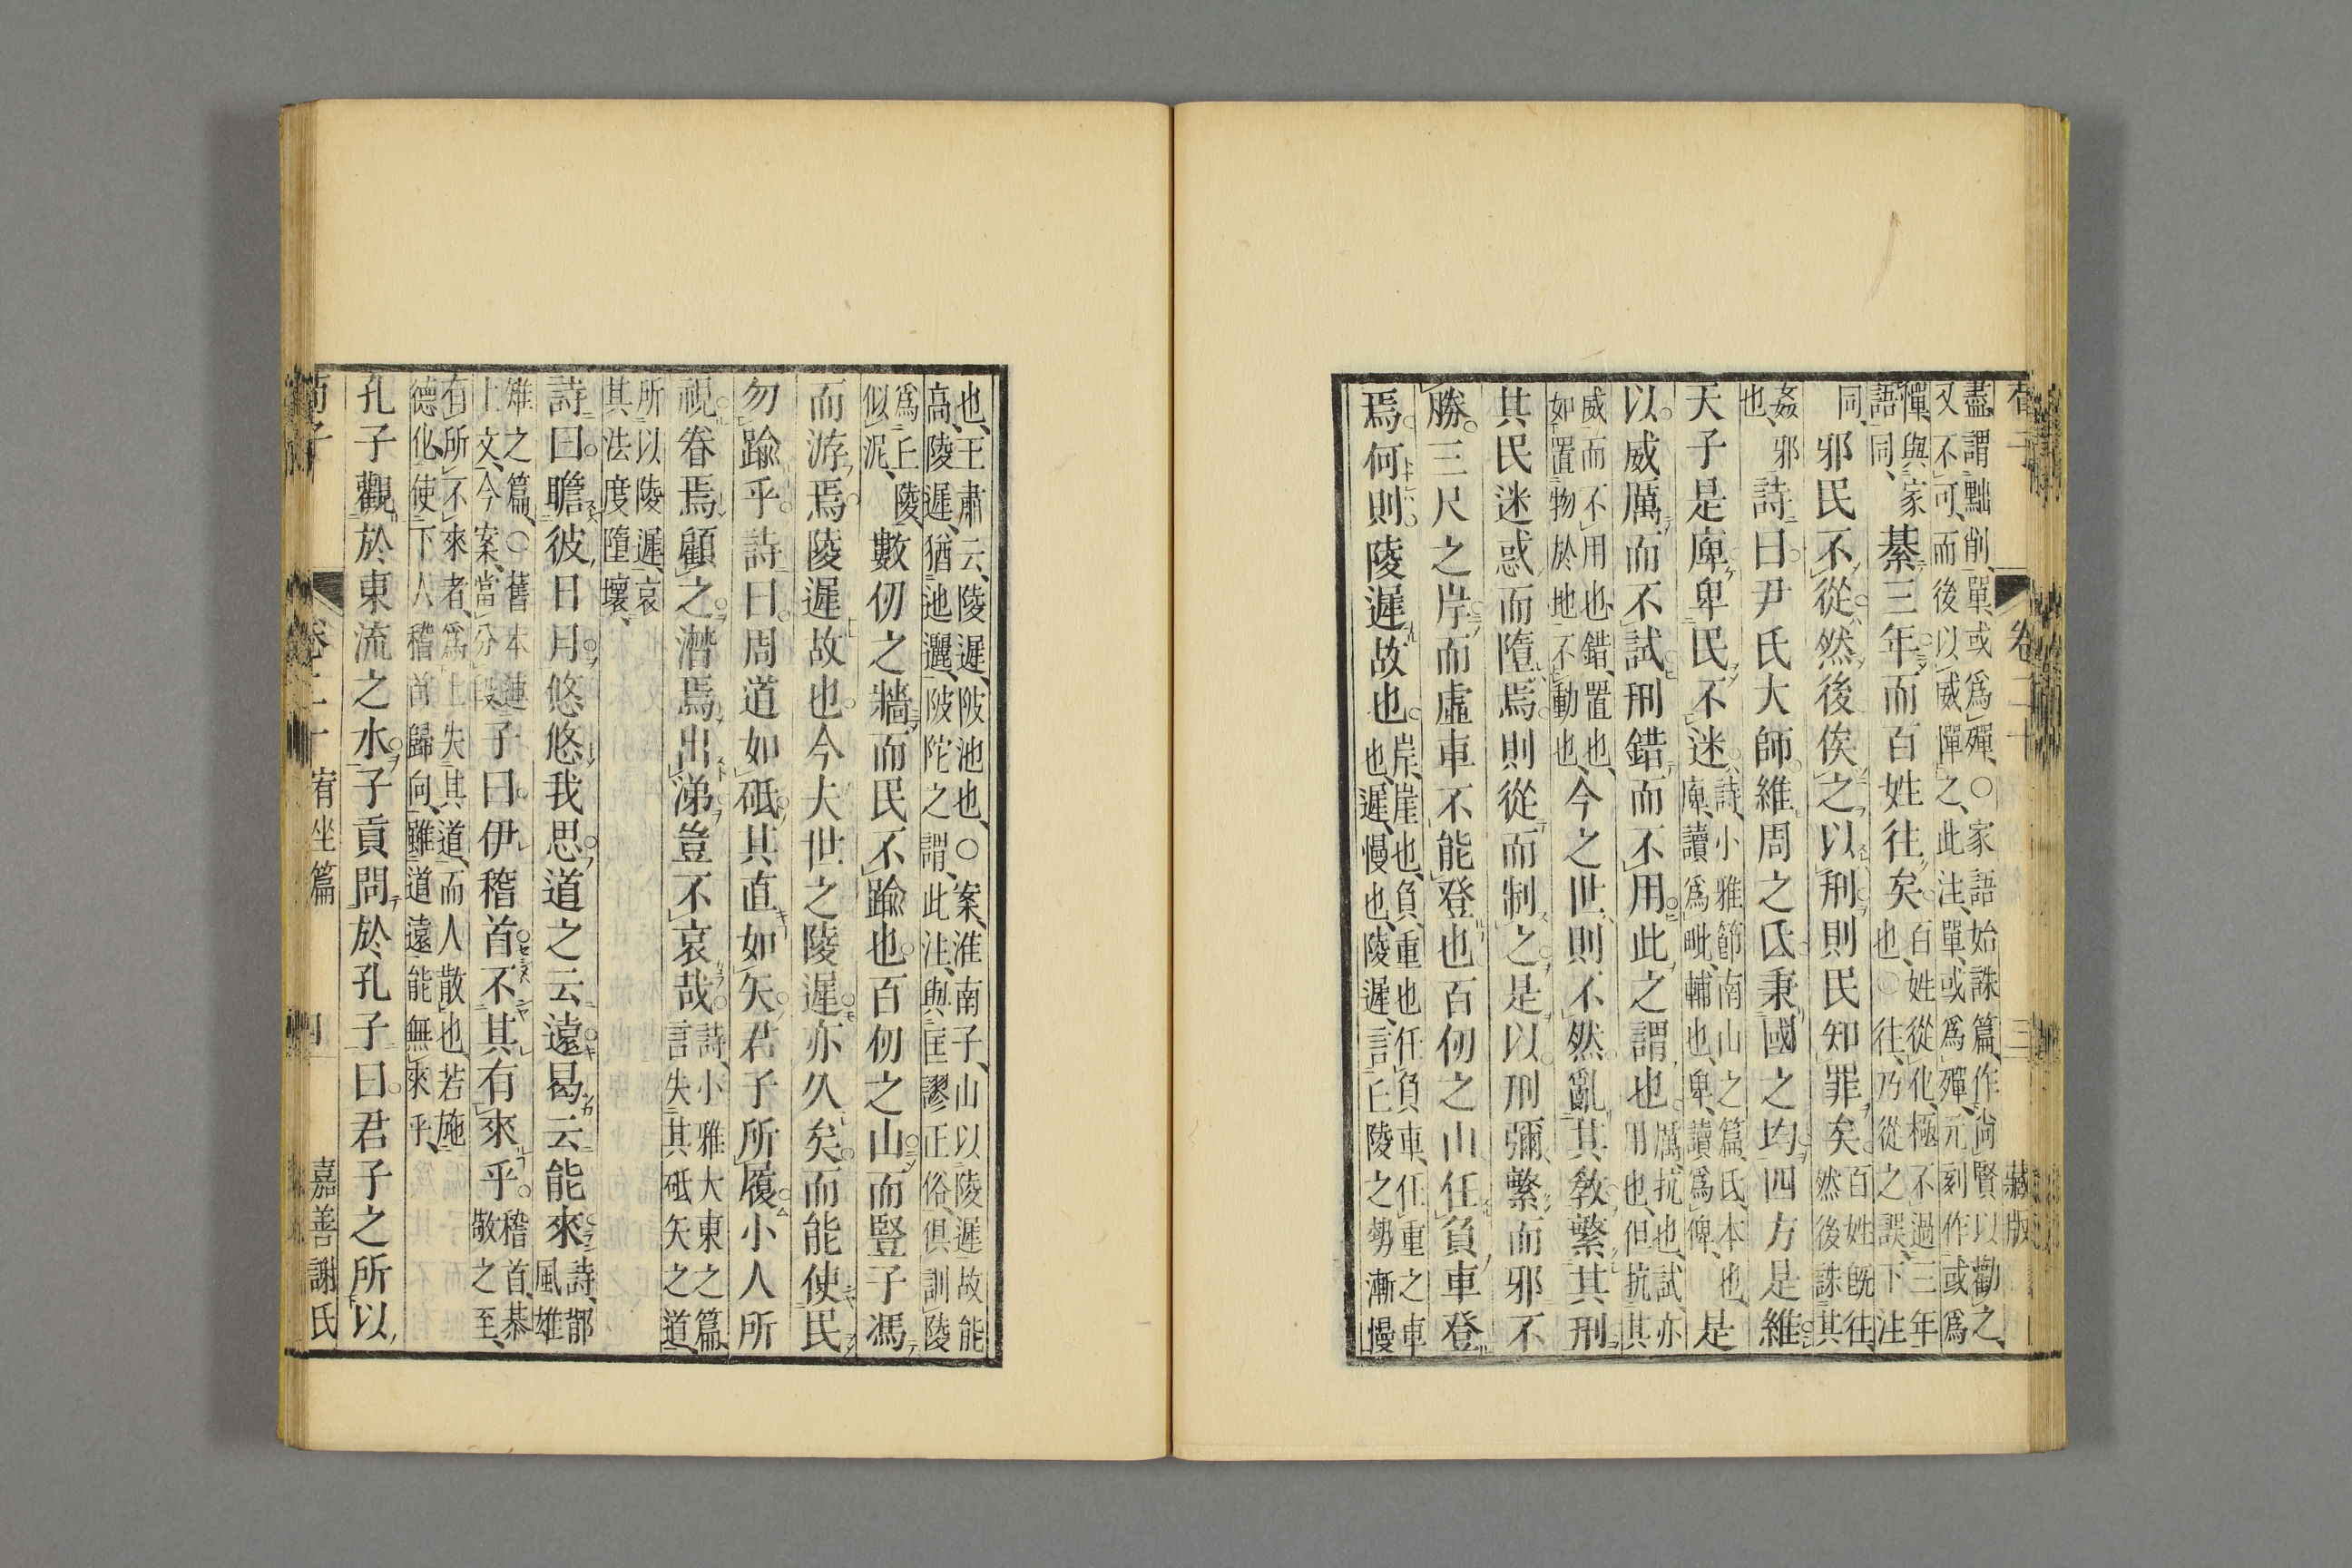 卷二十 三 藏版
盡謂黜削、單或爲殫、○家語始誅篇、作尚賢以勸之、
又不可、而後以威憚之、此注、單、或爲殫、元刻作或爲
憚、與家語同、綦三年而百姓往矣百姓從化、極不過三年也○往、乃從之誤、下注
同、邪民不從然後俟之以刑則民知罪矣百姓既往、然後誅其
姦邪也、詩曰尹氏大師維周之氐秉國之均四方是維
天子是庳卑民不迷詩小雅節南山之篇、氐、本也、庳、讀爲毗、輔也、卑、讀爲俾、是
以威厲而不試刑錯而不用此之謂也厲、抗也、試、亦用也、但抗其
威而不用也、錯、置也、如置物於地不動也、今之世則不然亂其敎繁其刑
其民迷惑而墮焉則從而制之是以刑彌繁而邪不
勝三尺之岸而虛車不能登也百仞之山任負車登
焉何則陵遲故也岸、崖也、負、重也、任負車、任重之車也、遲、慢也、陵遲、言丘陵之勢漸慢
也、王肅云、陵遲、陂池也、○案、淮南子、山以陵遲故能
高、陵遲、猶迆邐、陂陀之謂、此注、與匡謬正俗、俱訓陵
爲丘陵、似泥、數仞之牆而民不踰也百仞之山而豎子馮
而游焉陵遲故也今夫世之陵遲亦久矣而能使民
勿踰乎詩曰周道如砥其直如矢君子所履小人所
視眷焉顧之潸焉出涕豈不哀哉詩小雅大東之篇、言失其砥矢之道、
所以陵遲、哀其法度墮壞、
詩曰瞻彼日月悠悠我思道之云遠曷云能來詩、鄁風雄
雉之篇、○舊本連上文、今案、當分段、子曰伊稽首不其有來乎稽首、恭敬之至、
有所不來者、爲上失其道、而人散也、若施
德化、使下人稽首歸向、雖道遠能無來乎、
孔子觀於東流之水子貢問於孔子曰君子之所以
荀子 卷二十 宥坐篇 四 嘉善謝氏